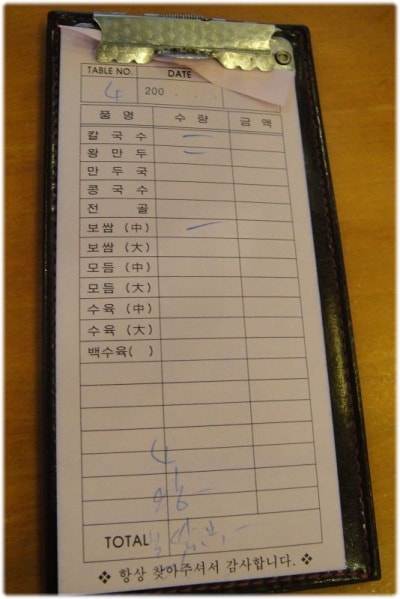 TABLE NO. DATE
4 200 . . .
품 명 수 량 금 액
칼 국 수 一
왕 만 두 二
만 두 국
콩 국 수
전 골
보쌈 (中) 一
보쌈 (大)
모듬 (中)
모듬 (大)
수육 (中)
수육 (大)
백수육( )
4
TOTAL
❖ 항상 찾아주셔서 감사합니다. ❖